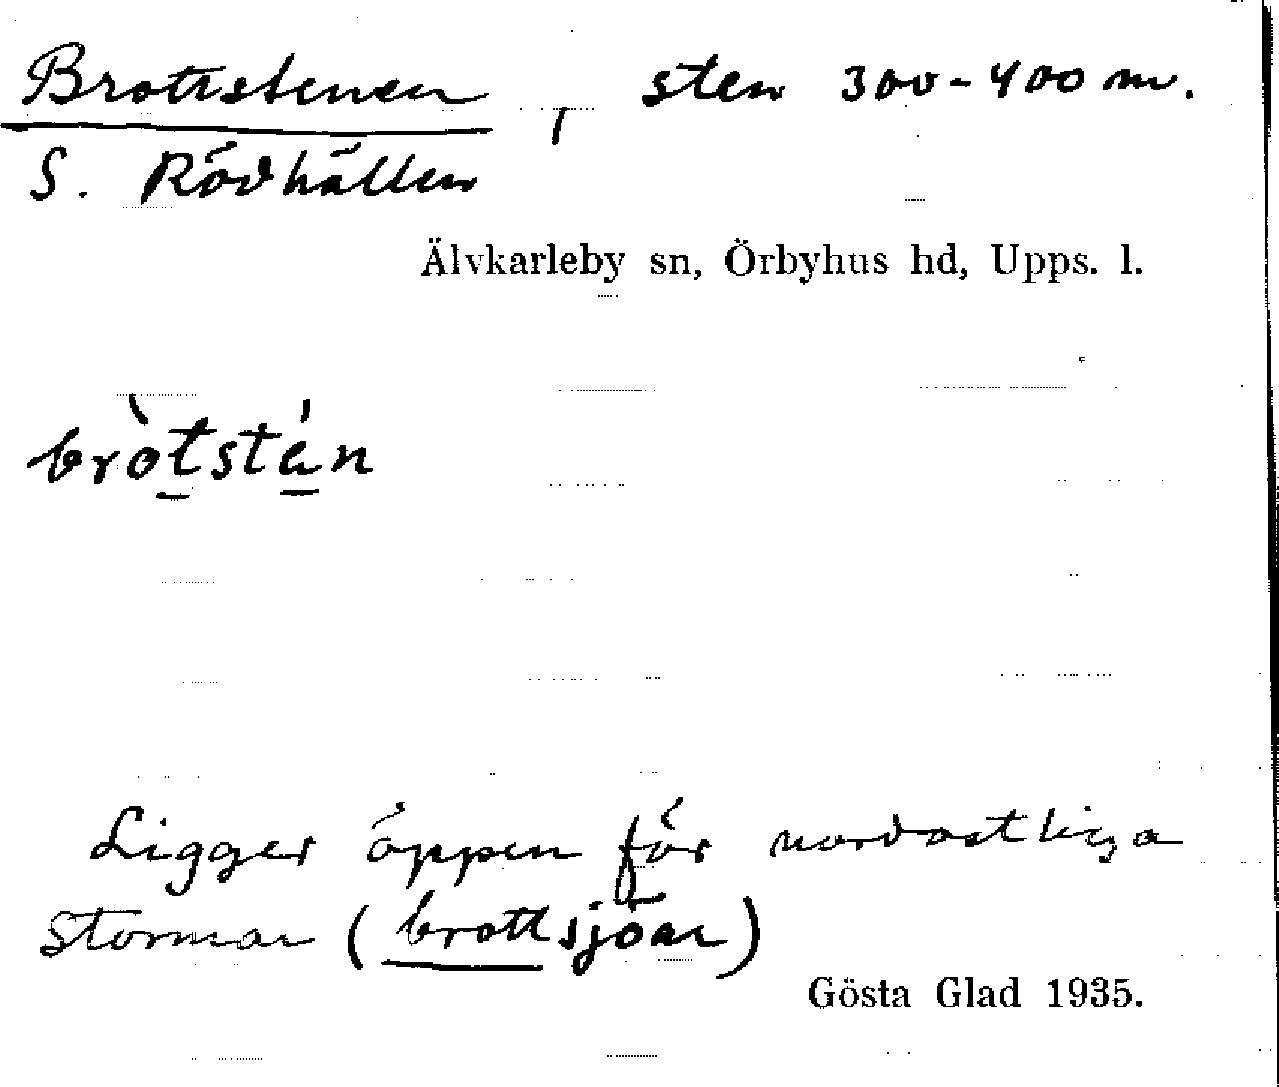 Brottstenen, sten 300-400 m.
S. Rödhällen
Älvkarleby sn, Örbyhus hd, Upps. l.
bròtstán
Ligger öppen för nordostliga
stormar (brottsjöar)
Gösta Glad 1935.